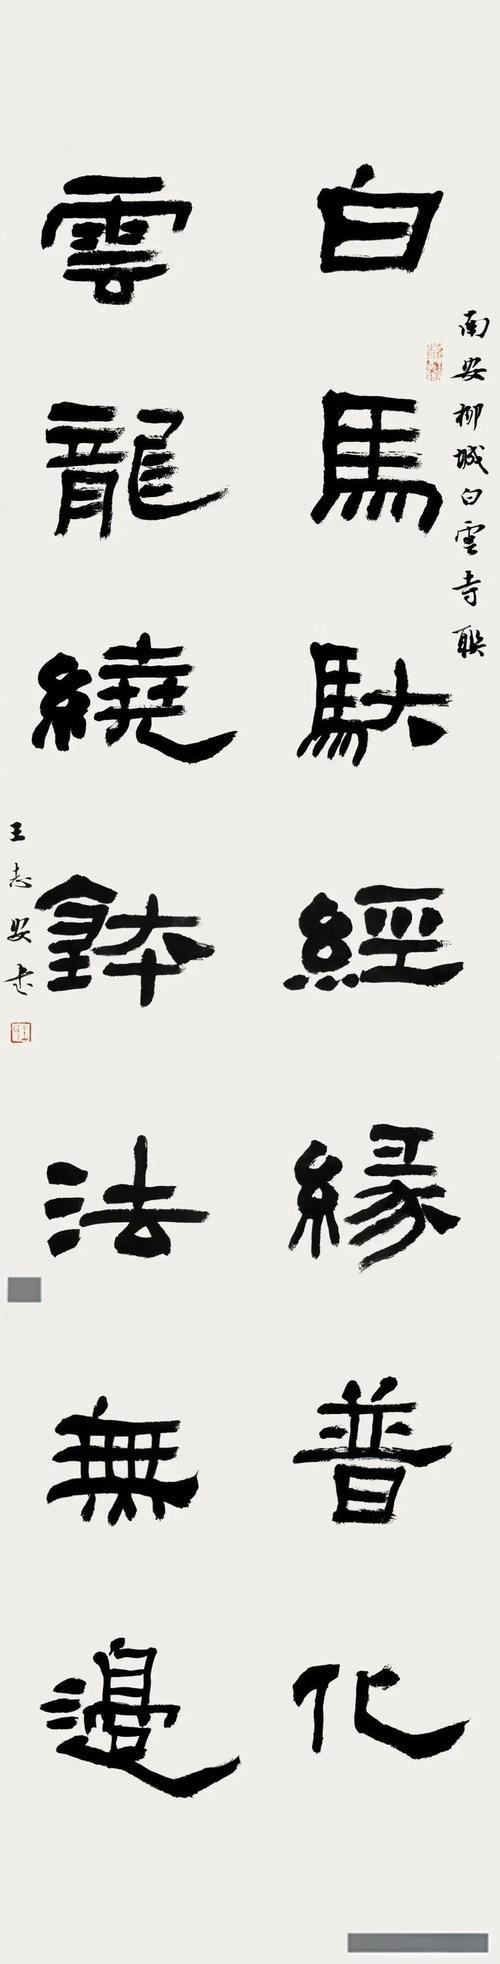 南安柳城白雲寺聯
白馬馱經緣普化
雲龍繞鉢法無邊
王志安書